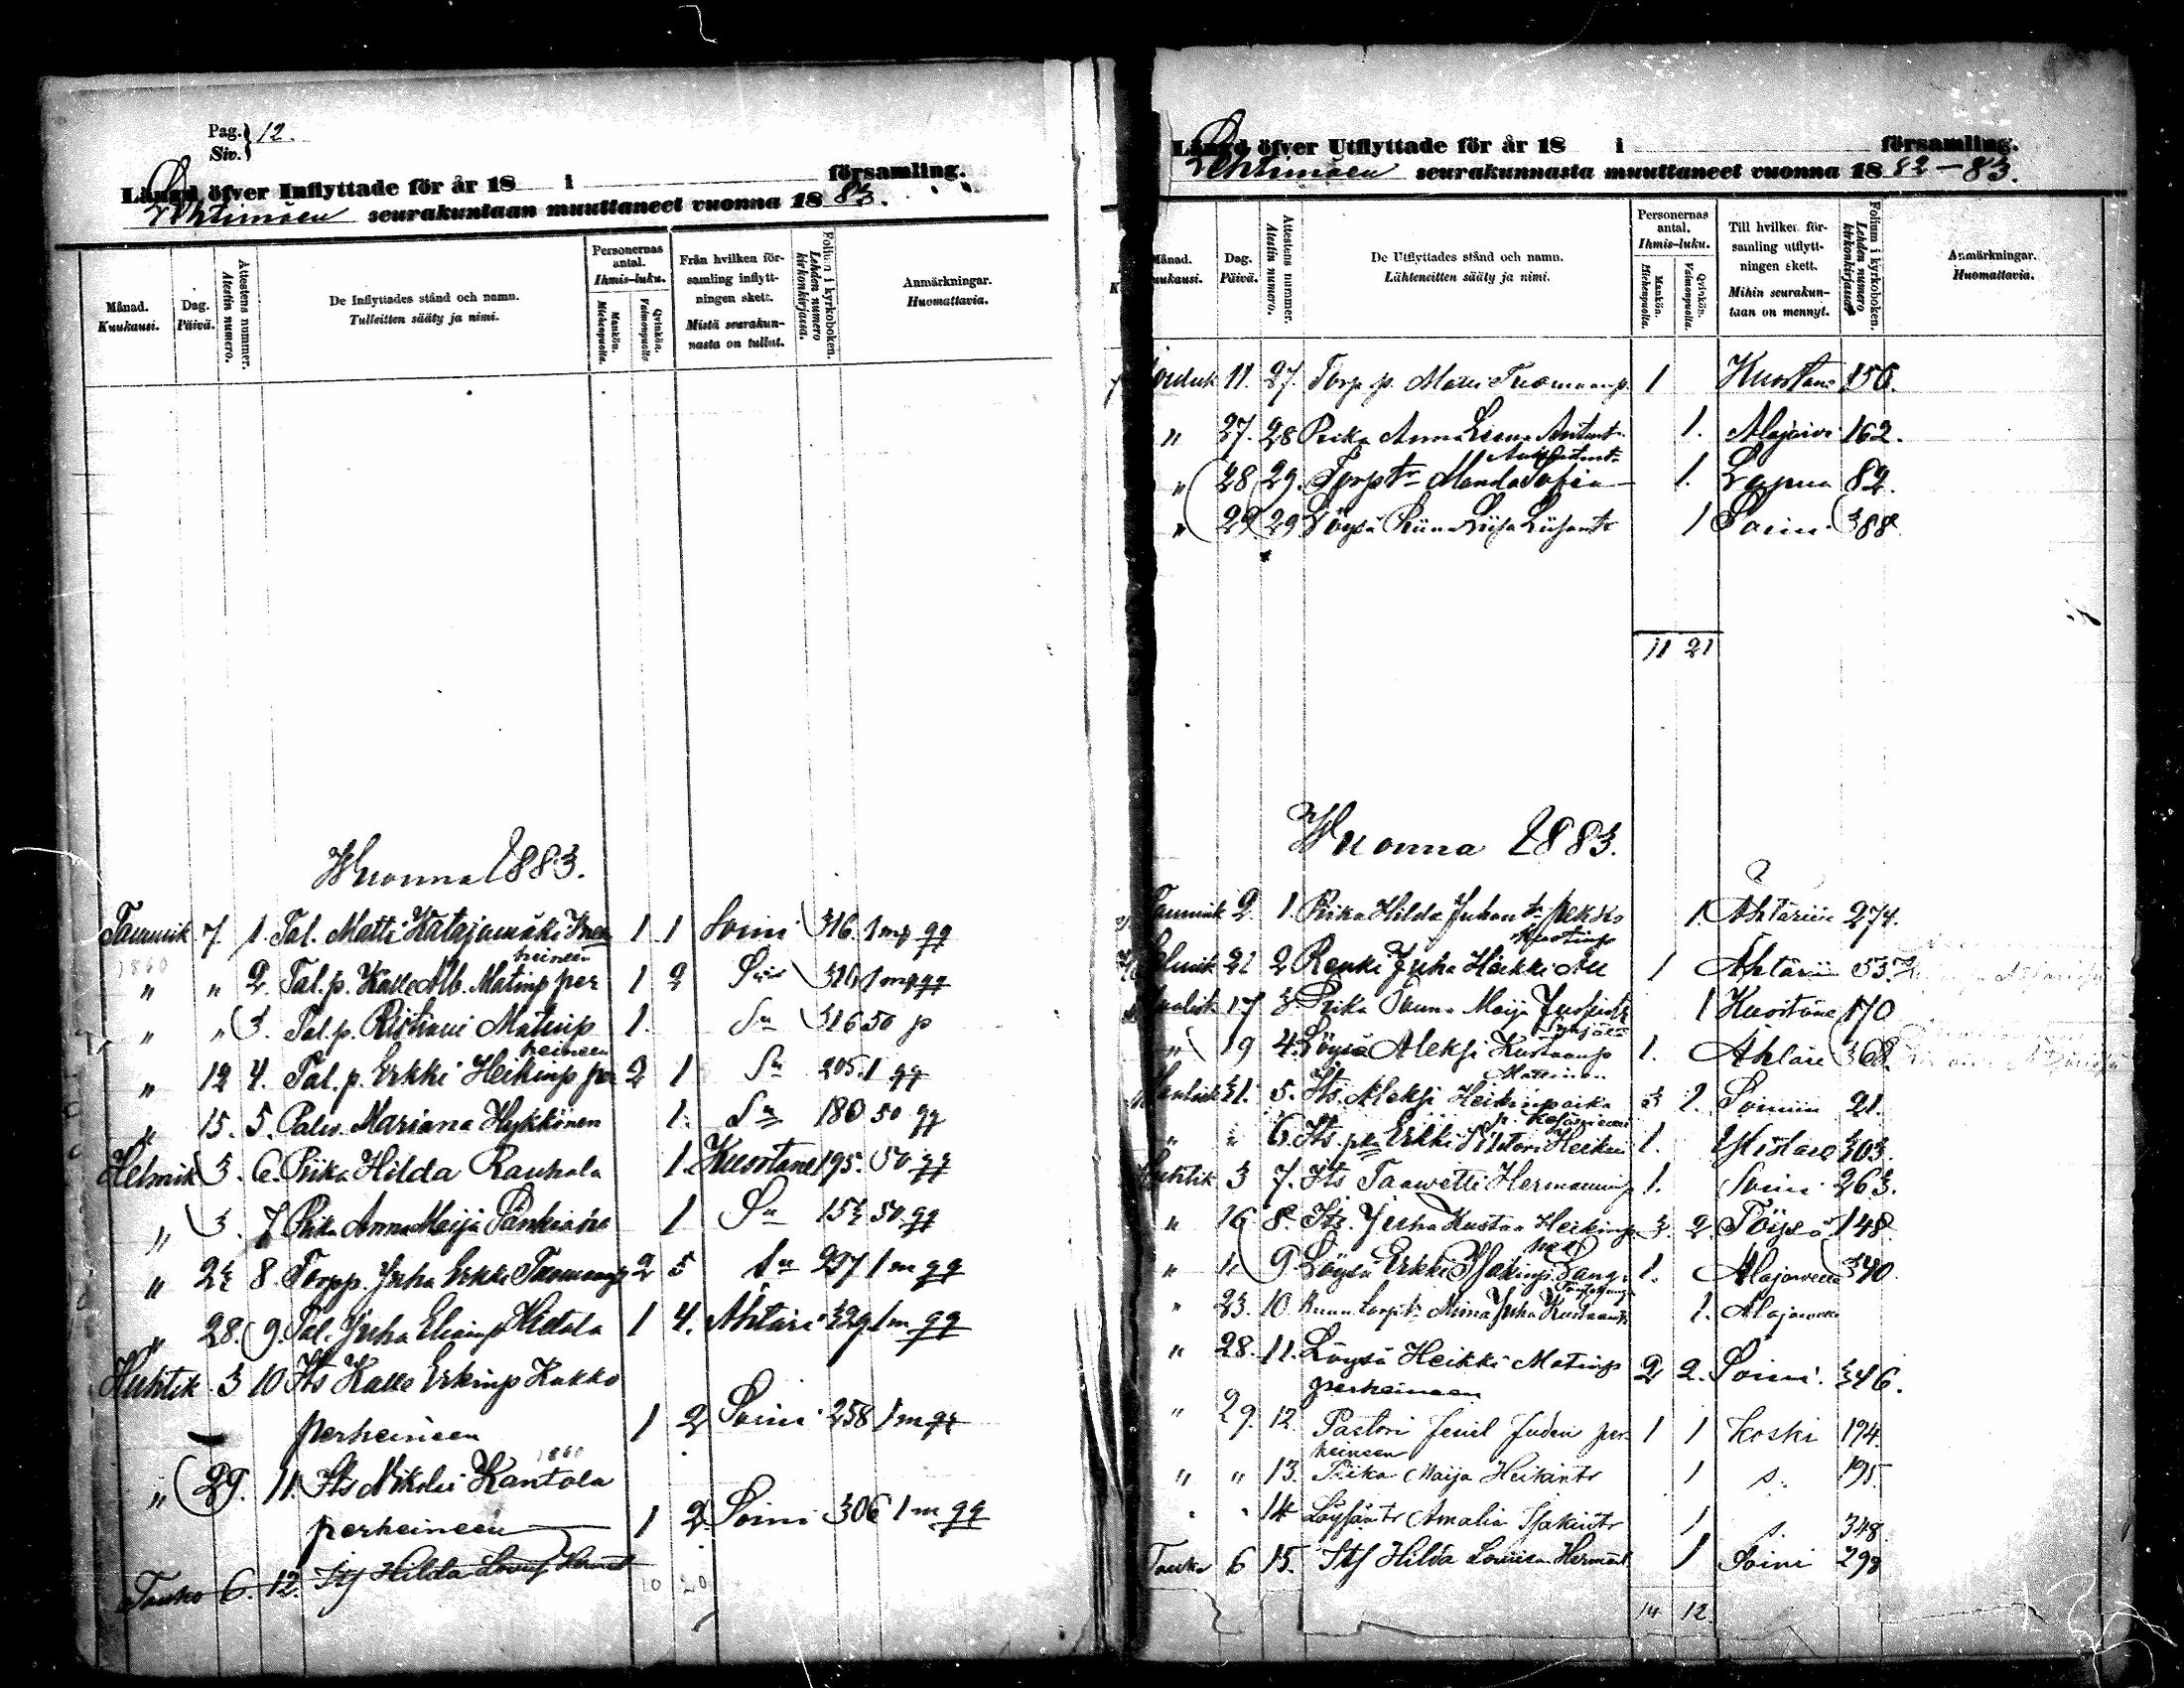 Pag. 12.
Siv.
Längd öfver Inflyttade för år 18 i församling.
Lehtimäen seurakuntaan muuttaneet vuonna 1883.
Månad. Kuukausi.
Dag. Päivä.
Attestens nummer. Atestin numero.
De Inflyttades stånd och namn.
Tulleitten sääty ja nimi.
Personernas antal. Ihmis-luku.
Mankön. Miehenpuolta.
Qvinkön. Vaimonpuolta.
Från hvilken församling inflyttningen skett.
Mistä seurakunnasta on tullut.
Folium i kyrkoboken. Lehden numero kirkonkirjassa.
Anmärkningar. Huomattavia.
Wuonna 1883.
Tammik 7. 1. Tal. Matti Katajamäki 1 1 Soini 316 1 mp qq
1860 heineen
" " 2. Tal.p. Kalle Alb. Matinp per 1 2 316 1 mp qq
" " 3. Tal.p. Ristiani Matinp 1. Sn 316 50 p
heineen
" 12 4. Tal.p. Erkki Heikinp per 2 1 Sn 205. 1 qq
" 15. 5. Palv. Mariana Hykkönen 1. Sn 180 50 qq
Helmik 3. 6. Piika Hilda Rauhala 1 Kuortane 195. 50 qq
" 3. 7. Piika Anna Maija 1 Sn 50 qq
" 8. Torpp. Juha Erkki Tuomaanp 2 5 Sn 297 1 m qq
" 28. 9. Tal. Juha Elianp Hietala 1 4. Ahtäri 329. 1 m qq
Huhtik 3 10 Its Kalle Erkinp Kukko
perheineen 1 2 Soini 258 1 m qq
1860
" 29. 11. Its Nikolai Kantola
perheineen 1 2. Soini 306 1 m qq
Touko 6. 12. Its Hilda 10 20
Längd öfver Utflyttade för år 18 i församling.
Lehtimäen seurakunnasta muuttaneet vuonna 1882-83.
Månad. Kuukausi.
Dag. Päivä.
Attestens nummer. Atestin numero.
De Utflyttades stånd och namn.
Lähteneitten sääty ja nimi.
Personernas antal. Ihmis-luku.
Mankön. Miehenpuolta.
Qvinkön. Vaimonpuolta.
Till hvilken församling utflyttningen skett.
Mihin seurakuntaan on mennyt.
Folium i kyrkoboken. Lehden numero kirkonkirjassa
Anmärkningar. Huomattavia.
Jouluk 11. 27. Torp.p. Matti Tuomaanp. 1 Kuortane 156.
" 27. 28 Piika Anna Leena Antint. 1. Alajärvi 162.
" 28 29. Torp tr Manda Sofia 1. Lapua 82.
" 29 29 Löysä Riina Liisa 1 Soini 388
11 21
Wuonna 1883.
Tammik 2 1. Piika Hilda Juhan tr Pekko 1. Ähtäriin 274.
Kustinp
Helmik 21 2 Renki Juha Heikki 1 Ähtäriin 53.
Maalisk 17 3. Piika Maija 1 Kuortane 170
" 19 4. Löysä Aleksi Kustaanp 1. Ähtäri 368.
31. 5. Its. Aleksi Heikinpoika 3 1. Soiniin 21.
" " 6. Its. Erkki Heikin 1. 303.
Huhtik 3 7. Its Taavetti Hermanninp 1. Soini 263.
" 16 8. Its. Juha Kustaa Heikinp 3. 2. Töysä 148.
" " 9. Löysä Erkki Isakinp Lang. 1. Alajärvelle 340.
" 23. 10. Miina Juha Kustaantr 1. Alajärvelle
" 28. 11. Löysä Heikki Matinp 2 2. Soini. 346.
perheineen
" 29. 12. Pastori per- 1 1 Koski 194.
heineen
" " 13. Piika Maija Heikintr 1 s. 195.
" " 14 Löysäntr Amalia Isakintr 1 s. 348
Touko 6 15. Its Hilda Loviisa 1 Soini 298
14 12.